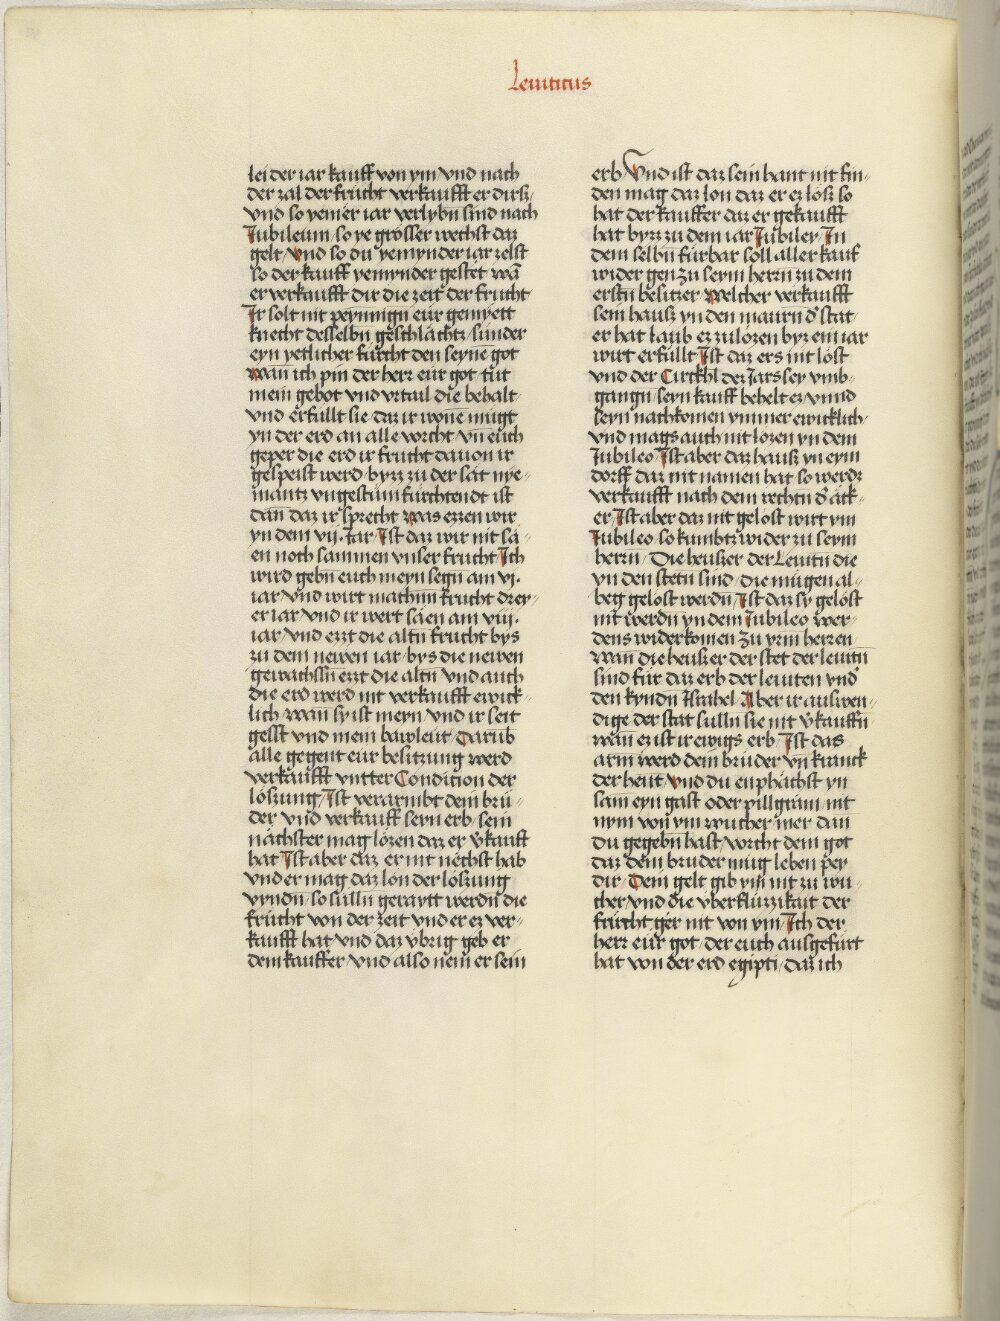 Leuiticus
lei der iar kauff von ym vnd nach
der zal der frücht verkaufft er dirß/
vnd so yemer iar verlybn̄ sind nach
Jubileum/so ye grösser wechst daz
gelt/vnd so du yemynder iar zelst
so der kauff yemynder gestet wan̄
er verkaufft dir die zeit der frücht
Ir solt nit peynnign̄ eur gemyett
knecht desselbn̄ geschlächtz/sunder
eyn yetlicher fürcht den seyne got
wan̄ ich pin der herr eur got tüt
mein gebot vnd vrtail die behalt
vnd erfullt sie/daz ir wone mügt
yn der erd an alle vorcht/vn̄ euch
geper die erd ir frucht dauon ir
gespeist werd/byzz zu der sät nye=
mantz vngestüm fürchtendt ist
dan̄ daz ir sprecht was ezzen wir
yn dem vij.Jar/Ist daz wir nit sä=
en noch sammen vnser frucht Ich
wird gebn̄ euch meyn segn̄ am vj.
iar/vnd wirt machnn frucht drey=
er iar/vnd ir wert säen am viij.
iar/vnd ezzt die altn̄ frücht bys
zu dem newen iar/bys die newen
gewachssn̄ ezzt die altn̄/vnd auch
die erd werd nit verkaufft ewick=
lich/wan̄ sy ist meyn/vnd ir seit
gesst vnd mein bawleut/Darüb
alle gegent eur besitzung werd
verkaufft vntter Condition der
lößung/Ist verarmbt dein brü=
der vnd verkauff seyn erb/sein
nächster mag lözen daz er v̄kauft
hat/Ist aber daz er nit nëchst hab
vnd er mag daz lon der lößung
vyndn̄/so sulln̄ geraytt werdn̄ die
frücht von der zeit vnd er ez ver=
kaufft hat/vnd daz vbrig geb er
dem kauffer/vnd also nem er sein
erb Vnd ist daz sein hant nit fin=
den mag daz lon daz er ez löß so
hat der kauffer daz er gekaufft
hat byzz zu dem iar Jubiley/In
dem selbn̄ fürbar soll aller kauf
wider gen zu seym herrn̄ zu dem
erstn̄ besitzer Welcher verkaufft
sein hauß yn den maurn d̄ stat
er hat laub ez zu lözen byz ein iar
wirt erfüllt Ist daz ers nit löst
vnd der Circkhl der Jars sey vmb=
gangn̄/seyn kauff behelt ez/vnnd
seyn nachkomen ymmer ewicklich
vnd mags auch nit lozen yn dem
Jubileo/Ist aber daz hauß yn eym
dorff daz nit namen hat so werdz
verkaufft nach dem rechtn̄ d̄ äck=
er/Ist aber daz nit gelöst wirt ym
Jubileo/so kumbtz wider zu seym
herrn̄/Die heußer der Leuitn̄ die
yn den stetn̄ sind/die mügen al=
beg gelöst werdn̄/Ist daz sy gelöst
nit werdn̄ yn dem Jubileo wer=
dens widerkomen zu yrm herzen
wan̄ die heußer der stet der leuitn̄
sind für daz erb der leuiten vnd̄
den kyndn̄ Israhel/Aber ir auswen=
dige der stat sulln̄ sie nit v̄kauffn̄
wan̄ ez ist ir ewigs erb/Ist das
arm werd dein bruder vn̄ kranck
der hent/vnd du enphächst yn
sam eyn gast oder pillgräm/nit
nym von ym wucher/mer dan̄
du gegebn̄ hast/vorcht dem got
daz dem bruder müg leben pey
dir/Dem gelt gib ym nit zu wu=
cher/vnd die vberflüzzikait der
frücht ger nit von ym/Ich der
herr eur got/der euch ausgefürt
hat von der erd egipti/daz ich